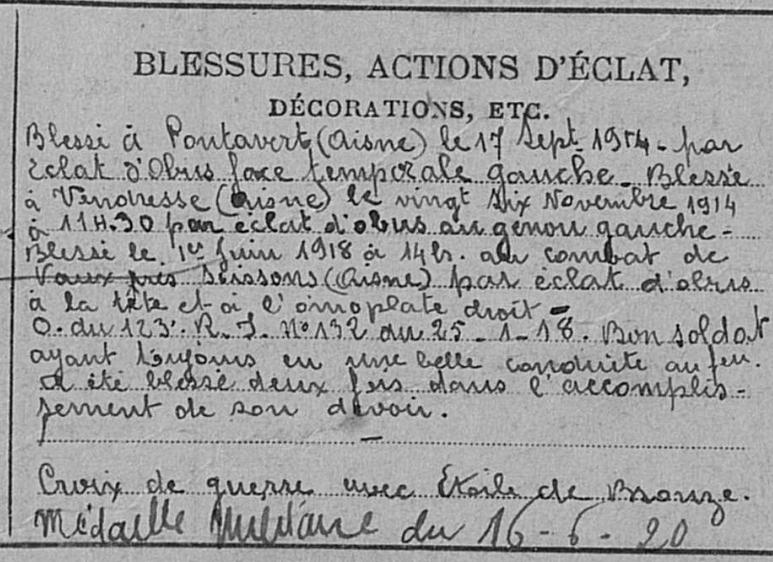 BLESSURES, ACTIONS D'ÉCLAT,
DÉCORATIONS, ETC.
Blessé à Pontavert (Aisne) le 17 Sept. 1914 - par
éclat d'obus face temporale gauche - Blessé
à Vendresse (Aisne) le vingt six Novembre 1914
à 11H.30 par éclat d'obus au genou gauche -
Blessé le 1er Juin 1918 à 14h. au combat de
Vaux près Soissons (Aisne) par éclat d'obus
à la tête et à l'omoplate droit -
O. du 123e. R. I. No 132 du 25 - 1 - 18. Bon soldat
ayant toujours eu une belle conduite au feu.
a été blessé deux fois dans l'accomplis-
sement de son devoir.
Croix de guerre avec Etoile de Bronze.
Médaille Militaire du 16 - 6 - 20